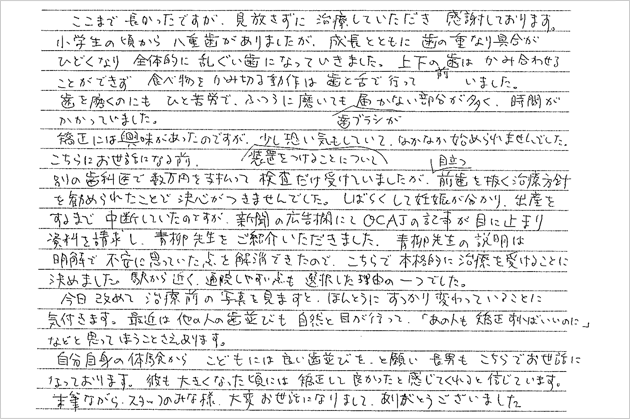 ここまで長かったですが、見放さずに治療していただき感謝しております。
小学生の頃から八重歯がありましたが、成長とともに歯の重なり具合が
ひどくなり全体的に乱ぐい歯になっていきました。上下の歯はかみ合わせる
ことができず食べ物をかみ切る動作は前歯と舌で行っていました。
歯を磨くのにもひと苦労で、ふつうに磨いても歯ブラシが届かない部分が多く、時間が
かかっていました。
矯正には興味があったのですが、装置をつけることについて少し恐い気もしていて、なかなか始められませんでした。
こちらにお世話になる前、
別の歯科医で数万円を支払って検査だけ受けていましたが、目立つ前歯を抜く治療方針
を勧められたことで決心がつきませんでした。しばらくして妊娠が分かり、出産を
するまで中断していたのですが、新聞の広告欄にてOCAJの記事が目に止まり
資料を請求し、青柳先生をご紹介いただきました。青柳先生の説明は
明解で不安に思っていた点を解消できたので、こちらで本格的に治療を受けることに
決めました。駅から近く、通院しやすい点も選択した理由の一つでした。
今日改めて治療前の写真を見ますと、ほんとうにすっかり変わっていることに
気付きます。最近は他の人の歯並びも自然と目が行って、「あの人も矯正すればいいのに」
などと思ってしまうことさえあります。
自分自身の体験からこどもには良い歯並びを、と願い長男もこちらでお世話に
なっております。彼も大きくなった頃には矯正して良かったと感じてくれると信じています。
末筆ながら、スタッフのみな様、大変お世話になりまして、ありがとうございました